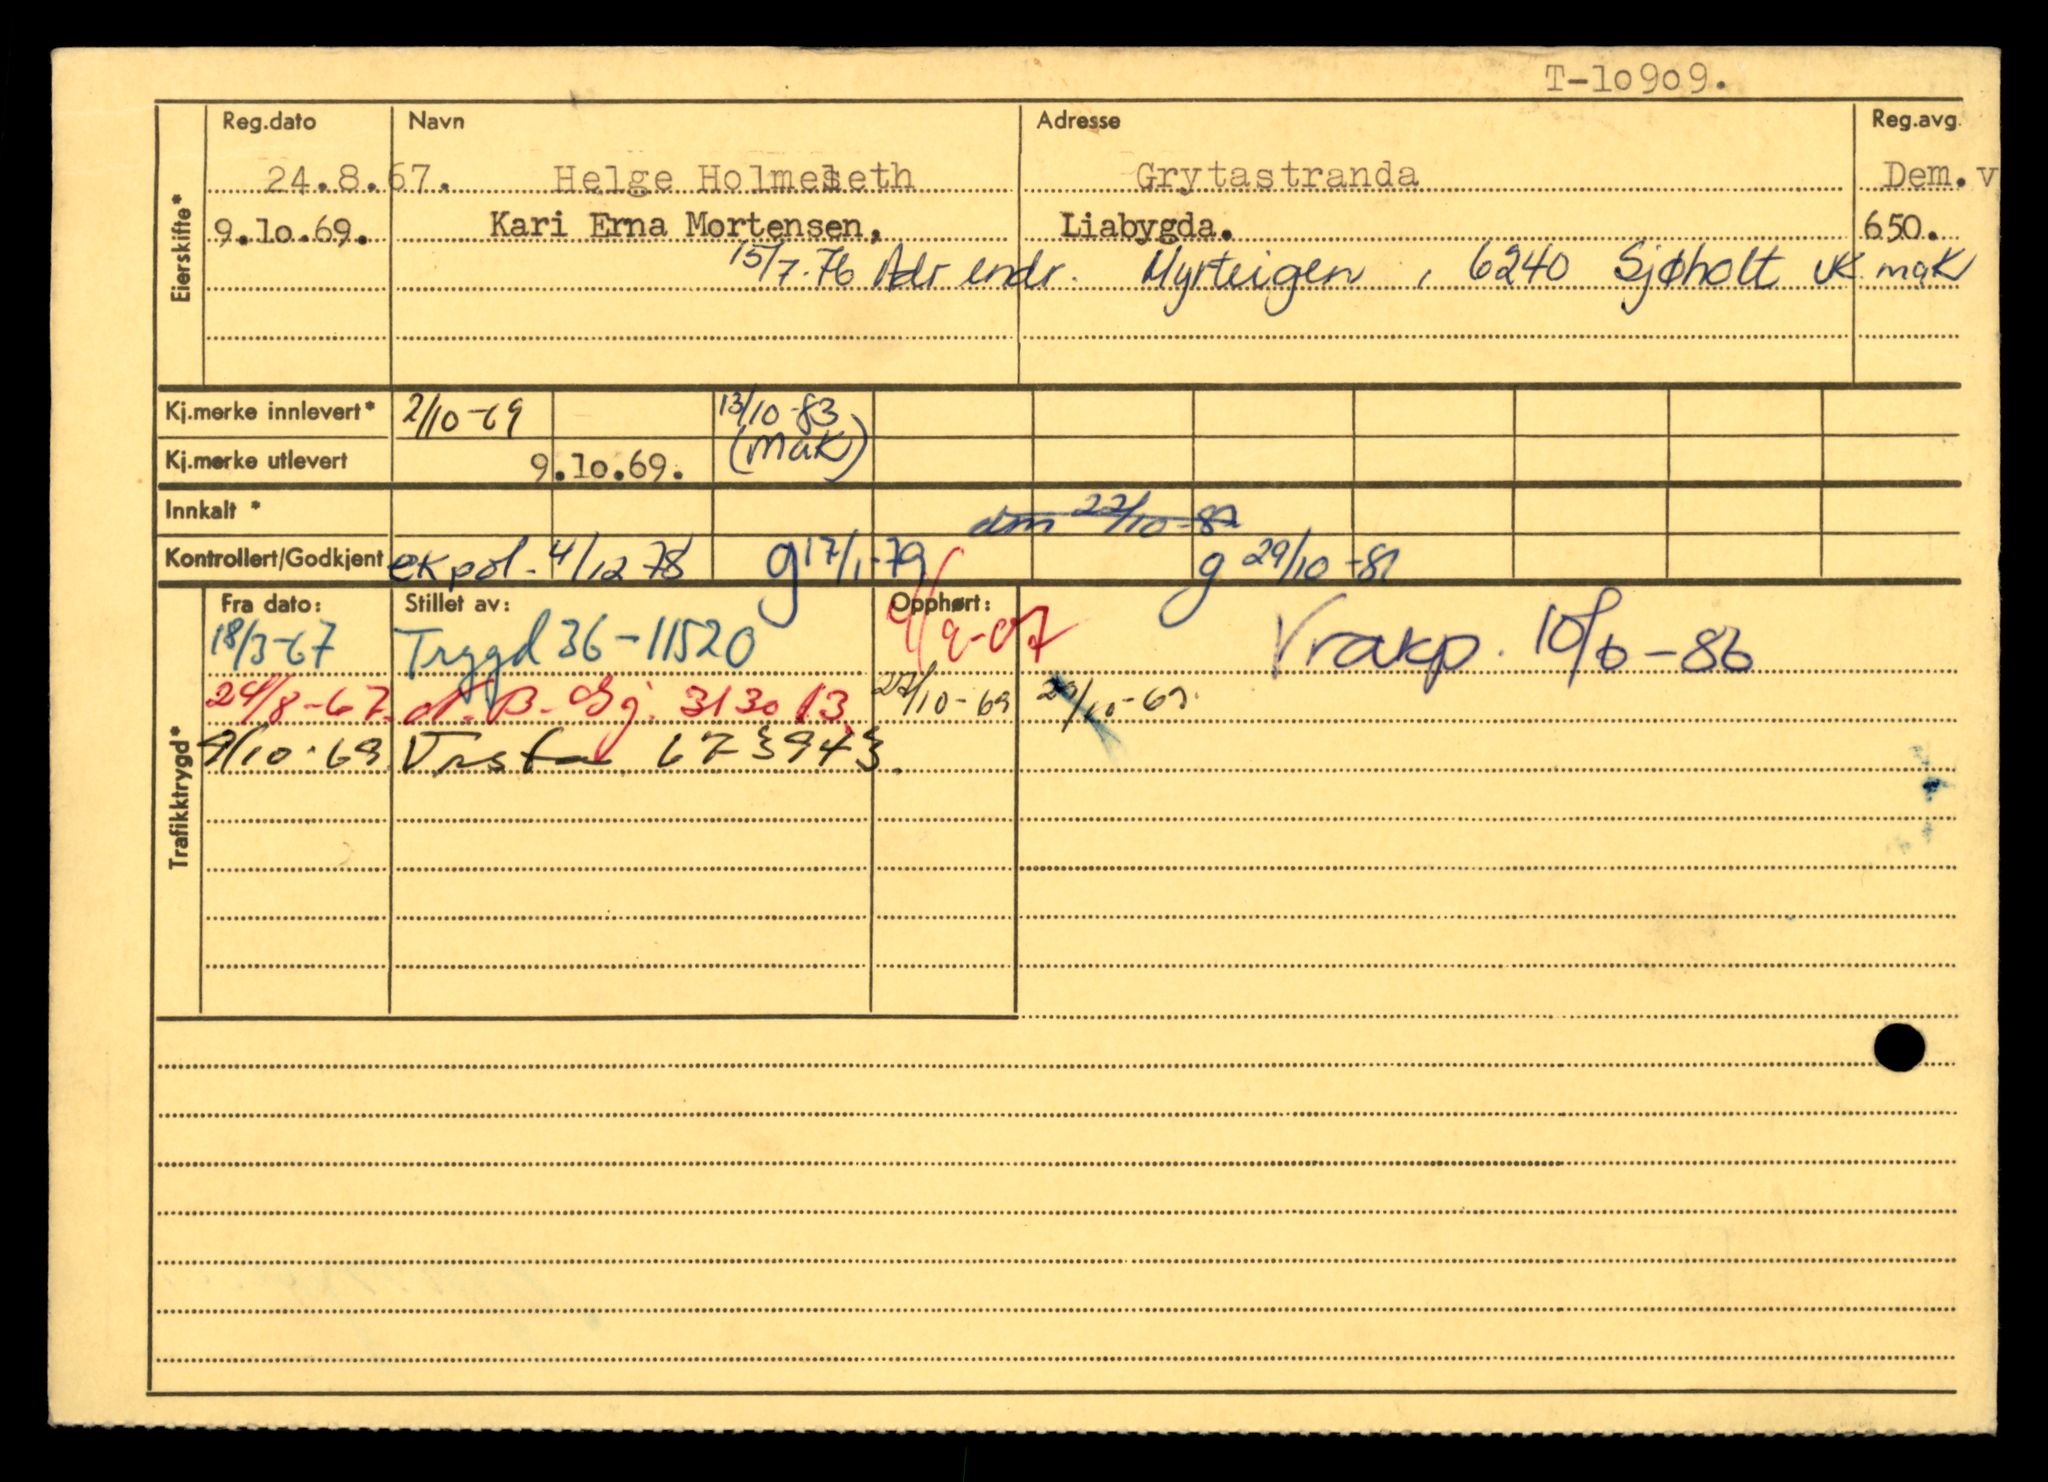 T-10909.
Reg.dato Navn Adresse Reg.avg.
24.8.67. Helge Holmeseth Grytastranda Dem.v
9.10.69. Kari Erna Mortensen, Liabygda. 650.
15/7.76 Adr endr. Myrteigen, 6240 Sjøholt VK. mak
Eierskifte*
Kj.merke innlevert* 2/10-69 13/10-83
(Mak)
Kj.merke utlevert 9.10.69.
Innkalt * dm 22/10-82
Kontrollert/Godkjent ek pol. 4/12 78 g 17/1-79 g 29/10-81
Fra dato: Stillet av: Opphørt:
18/3-67 Trygd 36-11520 Vrakp. 10/6-86
24/8-67. 313013 22/10-69 29/10-69.
9/10.69 Vesta 673943.
Trafikktrygd*